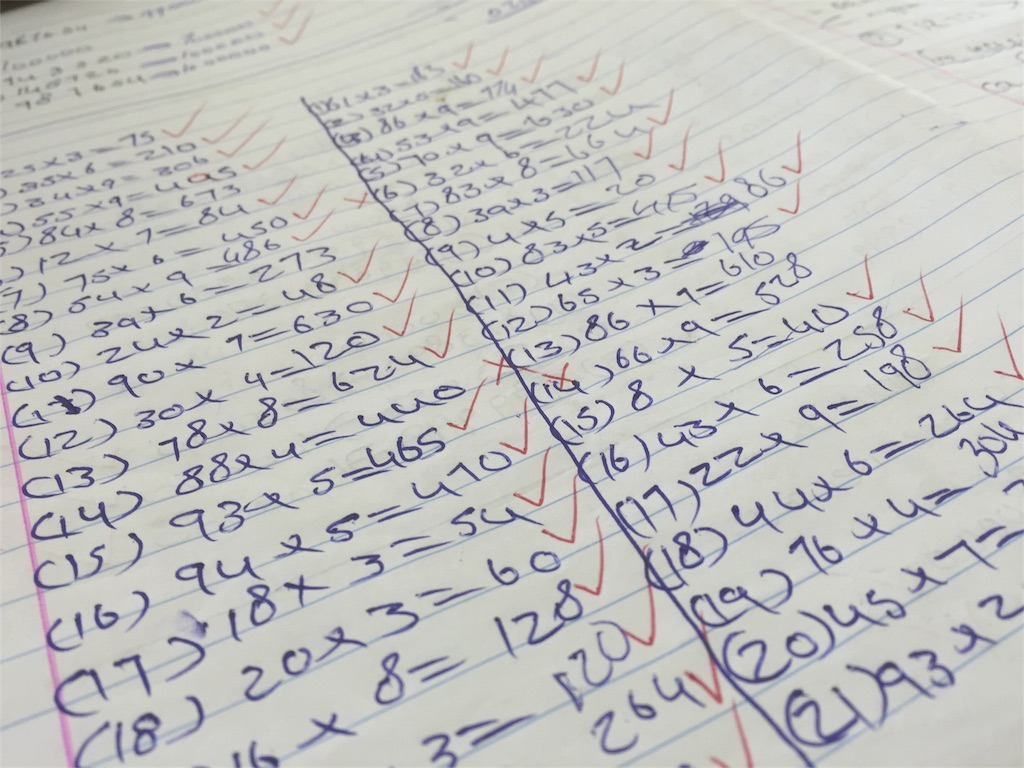 25 x 3 = 75
35 x 6 = 210
34 x 9 = 306
55 x 9 = 495
84 x 8 = 673
12 x 7 = 84
7) 75 x 6 = 450
8) 54 x 9 = 486
(9) 39 x 6 = 273
(10) 24 x 2 = 48
(11) 90 x 7 = 630
(12) 30 x 4 = 120
(13) 78 x 8 = 624
(14) 88 x 4 = 440
(15) 93 x 5 = 465
(16) 94 x 5 = 470
(17) 18 x 3 = 54
(18) 20 x 3 = 60
16 x 8 = 128
3 = 120
264
32 x 5 = 160
86 x 9 = 774
53 x 9 = 477
70 x 9 = 630
(6) 32 x
(7) 83 x 8 = 664
(8) 39 x 3 = 117
(9) 4 x 5 = 20
(10) 83 x 5 = 415
(11) 43 x 2 = 86
(12) 65 x 3 = 195
(13) 86 x 9 = 610
(14) 66 x 9 = 528
(15) 8 x 5 = 40
(16) 43 x 6 = 258
(17) 22 x 9 = 198
(18) 44 x 6 = 264
(19) 76 x 4 = 304
(20) 45 x 7 =
(21) 93 x 2